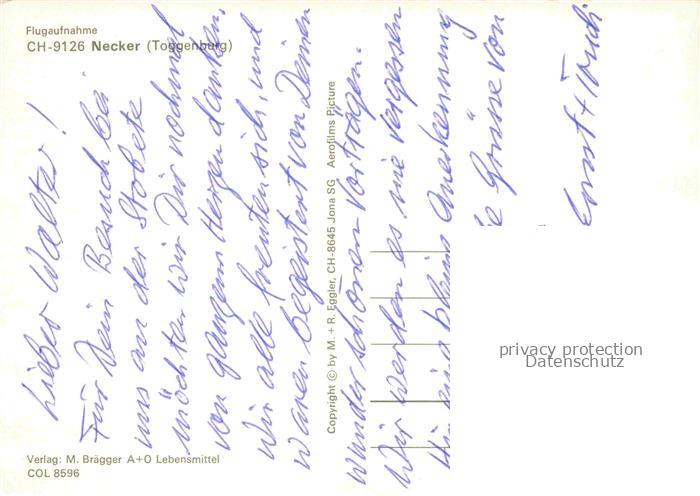 Flugaufnahme
CH-9126 Necker (Toggenburg)
Lieber Walter!
Für Dein Besuch bei
uns an der Stobete
möchten wir Dir nochmal
von ganzem Herzen danken.
Wir alle freuten sich, und
waren begeistert von Deinen
wunderschönen Vorträgen.
Wir werden es nie vergessen
Anerkennung
Grüsse von
Ernst + Trudi
Copyright © by M. + R. Eggler, CH-8645 Jona SG Aerofilms Picture
privacy protection
Datenschutz
Verlag: M. Brägger A+O Lebensmittel
COL 8596